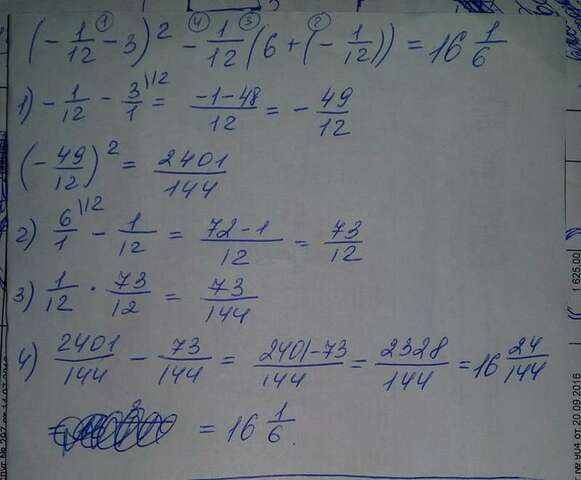 ① ④ ③ ②
(-1/12 - 3)² - 1/12 (6 + (-1/12)) = 16 1/6
1) - 1/12 - 3/1 \12 = -1-48/12 = - 49/12
(- 49/12)² = 2401/144
2) 6/1 \12 - 1/12 = 72-1/12 = 73/12
3) 1/12 · 73/12 = 73/144
4) 2401/144 - 73/144 = 2401-73/144 = 2328/144 = 16 24/144
= = 16 1/6.
1 625.00
№ 904 от 20.09.2016